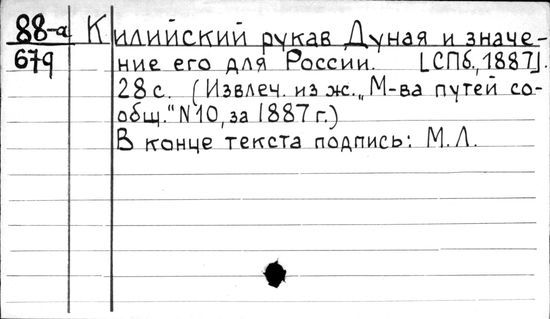 88-а Килийский рукав Дуная и значе-
679 ние его для России. [СПб., 1887].
28 с. (Извлеч. из ж. „М-ва путей со-
общ." N10, за 1887 г.)
В конце текста подпись: М.Л.